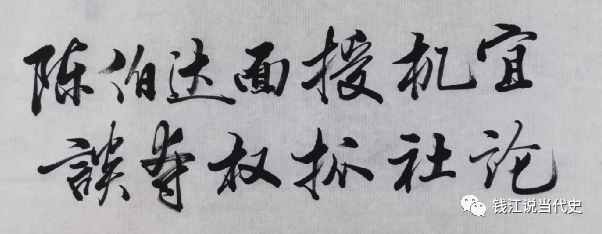 陈伯达面授机宜
談夺权抓社论
钱江说当代史